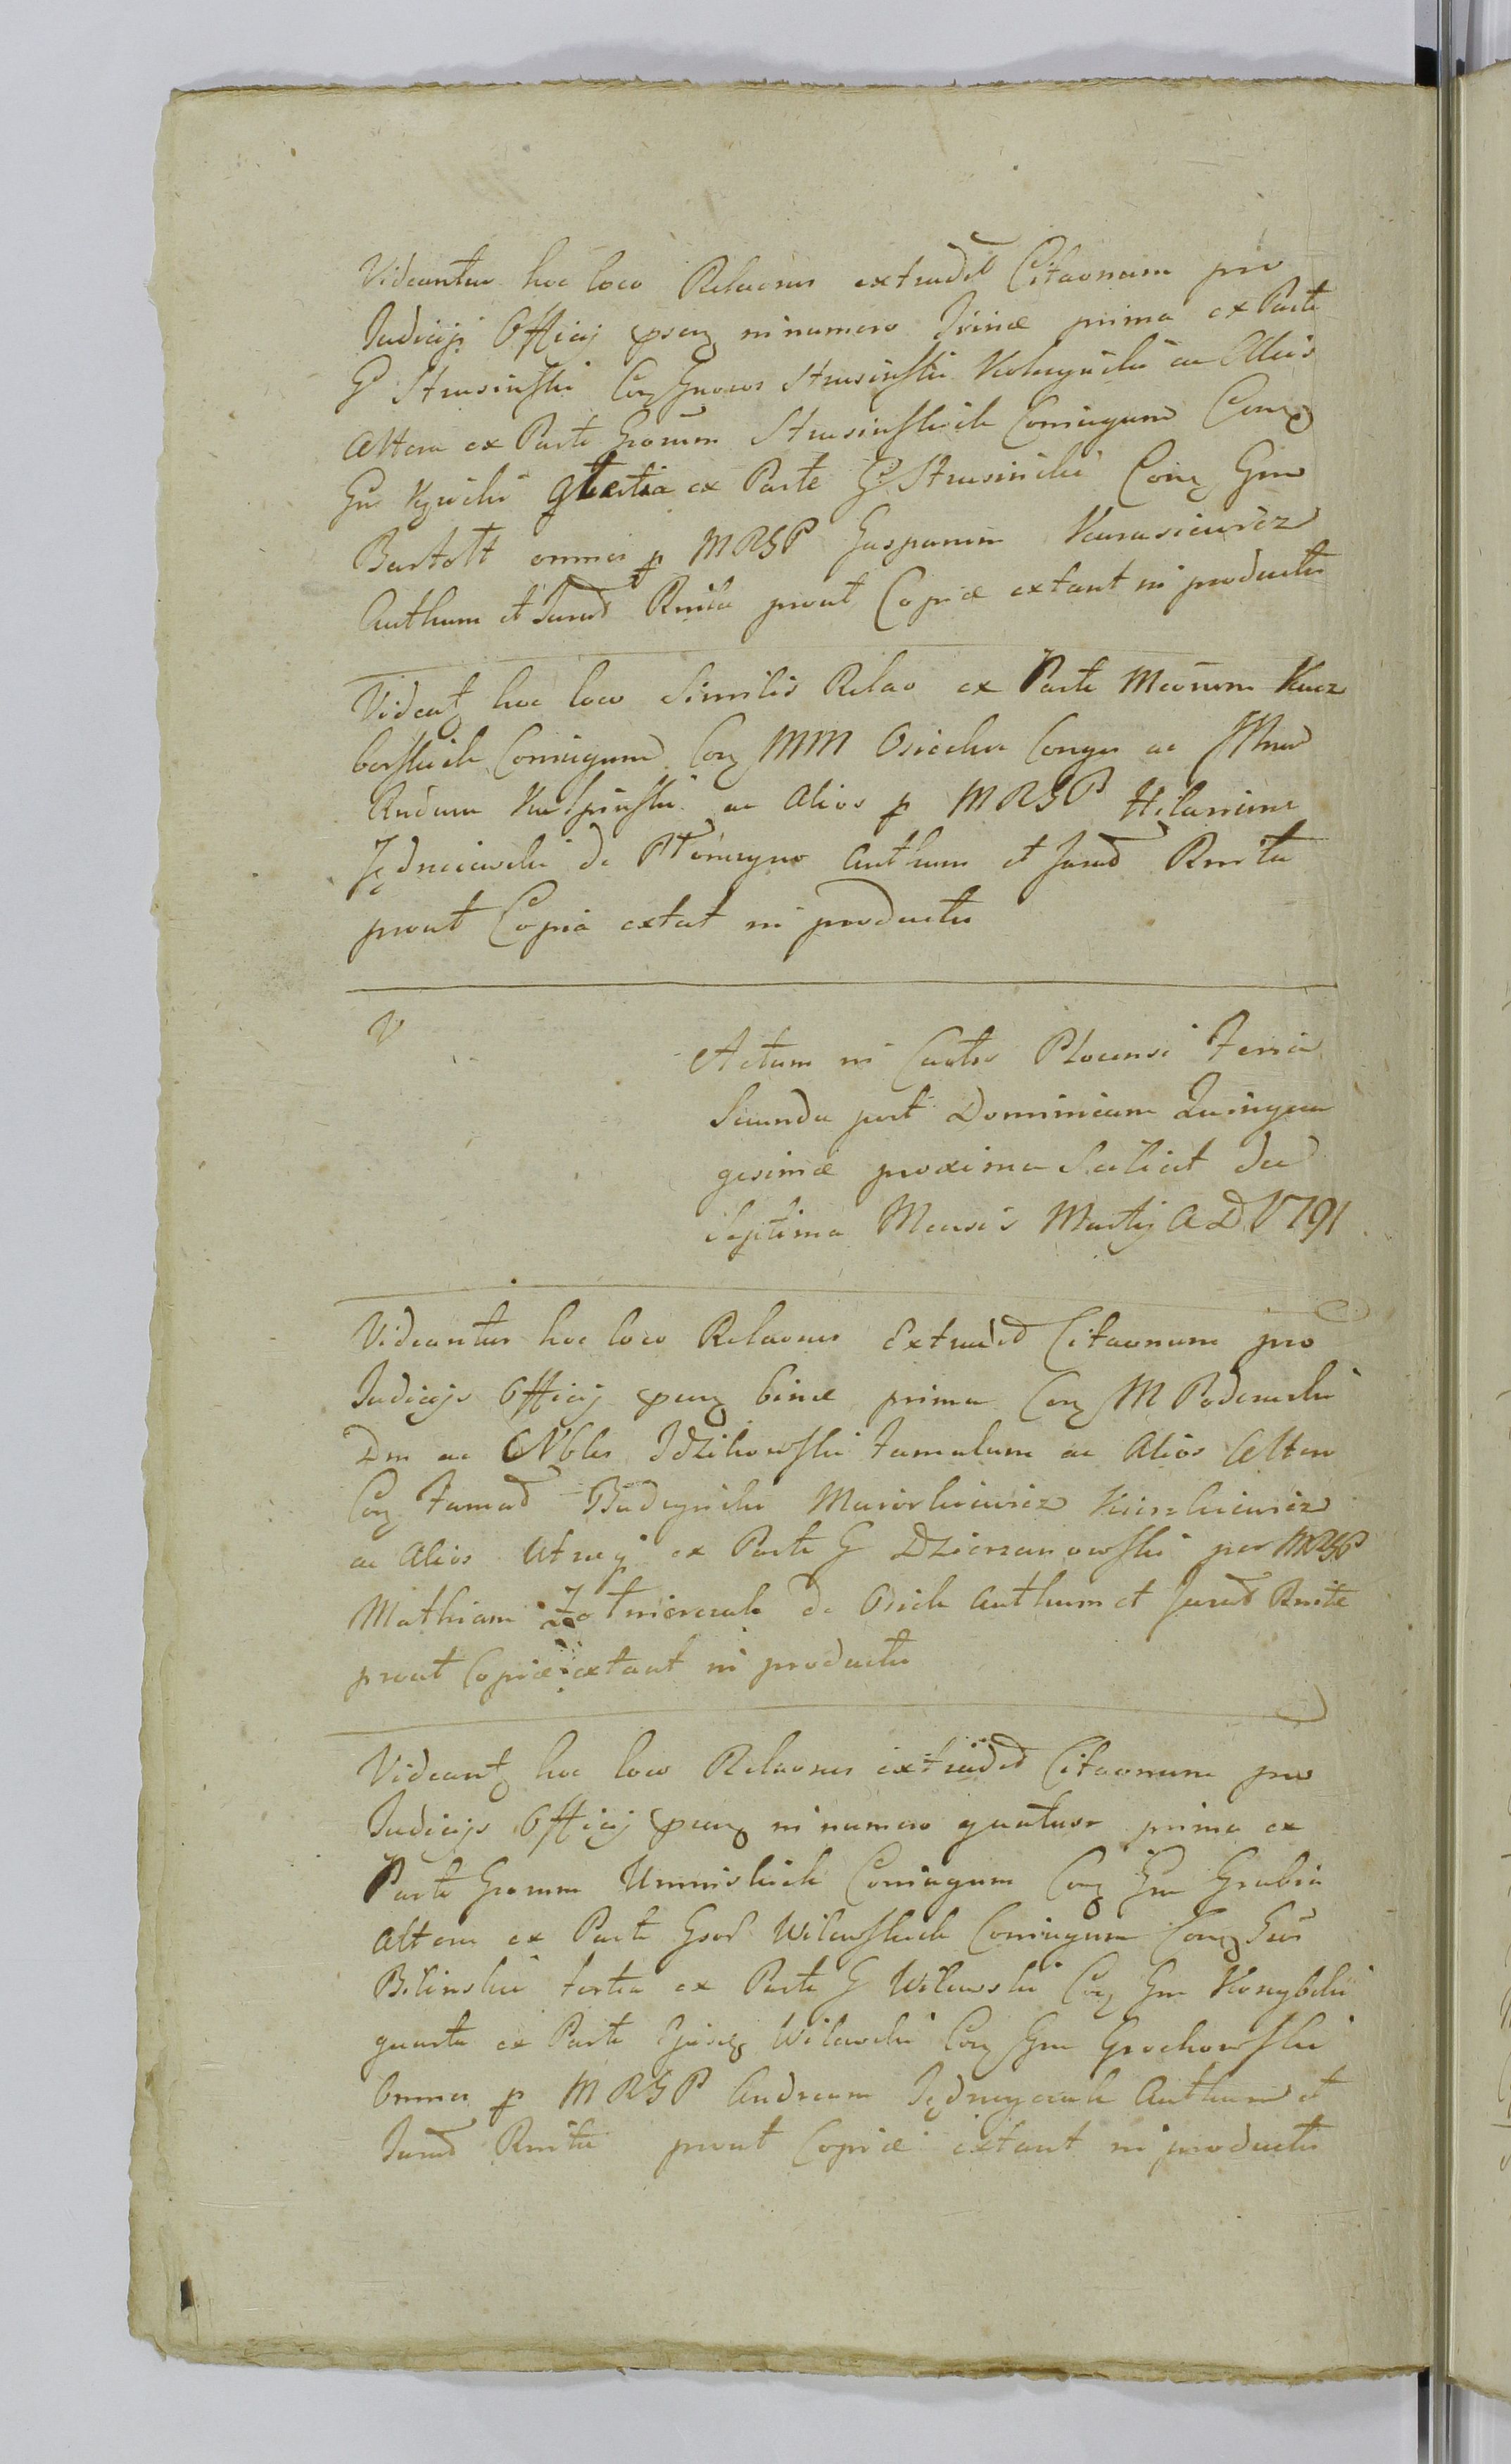 Videantur hoc loco Relaones extradit Citaonum pro
Judicijs Officij in numero Trinæ prima ex Parte
G Strusinski Con Gnosos Strusinskie ac Alios
Altera ex Parte Gnorum Strusinskich Coniugum Con
Gū tertia ex Parte G Strusinski Con Gnū
Bartolt omnes p MRGP Gasparum Karasiewicz
Authum et Jurad Rnita prout Copiæ extant in productu
Videat hoc loco Similis Relao ex Parte Mcorum Kucz
borskich Coniugum Con MM Osiecka Conges ac
ac Alios p MRGP Hilarium
de Authum et Jurad Rnita
prout Copia extat in productu
V
Actum in Castro Plocensi Feria
Secunda post Dominicam Quinqua
gesimæ proxima Scilicet die
Septima Mensis Martij A D 1791
Videantur hoc loco Relaones Extradit Citaonum pro
Judicijs Officij binæ prima Con M Podczaski
Dm ac Nbles Idzikowski Famulum ac Alios Altera
Con Famat
ac Alios ex Parte G Dzierzanowski per MRGP
Mathiam de Osiek Authum et Jurat Rnite
prout Copiæ extant in productu
Videant hoc loco Relaones extradit Citaonum pro
Judicijs Officij in numero quatuor prima ex
Parte Gnorum Uminskich Coniugum Con Gnū
altera ex Parte Gnor Wilewskich Coniugum Con Gnū
Bilinskie tertia ex Parte G Wilewski Con Gnū
quarta ex Parte Ejusd Wilewski Con Gnū Grochowski
Omnes p MRGP Andream Authum et
Jurad Rnita prout Copiæ extant in productu